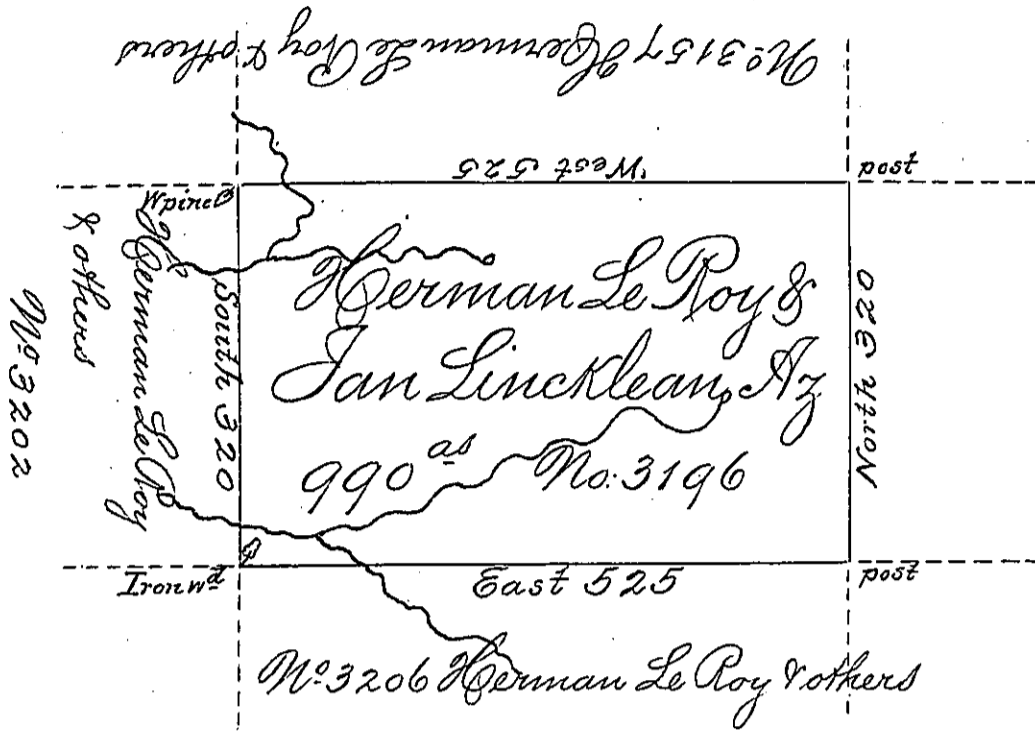 No. 3157 Herman Le Roy & others
West 525
post
W pine
Herman Le Roy
& others
No. 3202
South 320
Herman Le Roy &
Jan Lincklean, Az
990 as No: 3196
North 320
Ironwd
East 525
post
No. 3206 Herman Le Roy & others